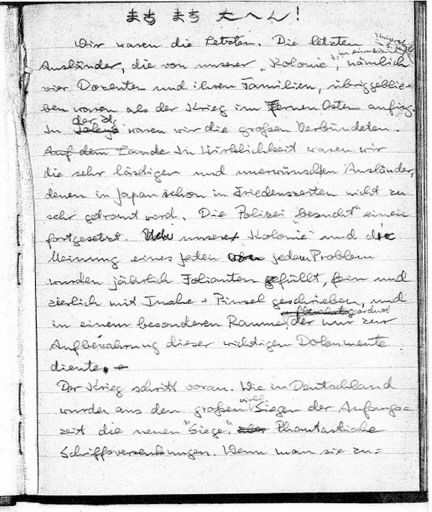 まち まち 大へん!
Wir waren die Letzten. Die letzten
Ausländer, die von unserer "Kolonie", nämlich
vier Dozenten und ihren Familien, übriggeblie-
ben waren als der Krieg im Fernen Osten anfing.
In waren wir die großen Verbündeten.
Auf dem Lande In Wirklichkeit waren wir
die sehr lästigen und unerwünschten Ausländer,
denen in Japan schon in Friedenszeiten nicht zu
sehr getraut wird. Die Polizei "besucht" einen
fortgesetzt. unsere Kolonie und die
Meinung eines jeden von jedem Problem
wurden jährlich Folianten gefüllt, fein und
zierlich mit Tusche + Pinsel geschrieben, und
in einem besonderen Raume, der nur zur
Aufbewahrung dieser wichtigen Dokumente
diente.
Der Krieg schritt voran. Wie in Deutschland
wurden aus den großen Siegen der Anfangs=
zeit die neuen "Siege". Phantastische
Schiffsversenkungen. Wenn man sie zu=